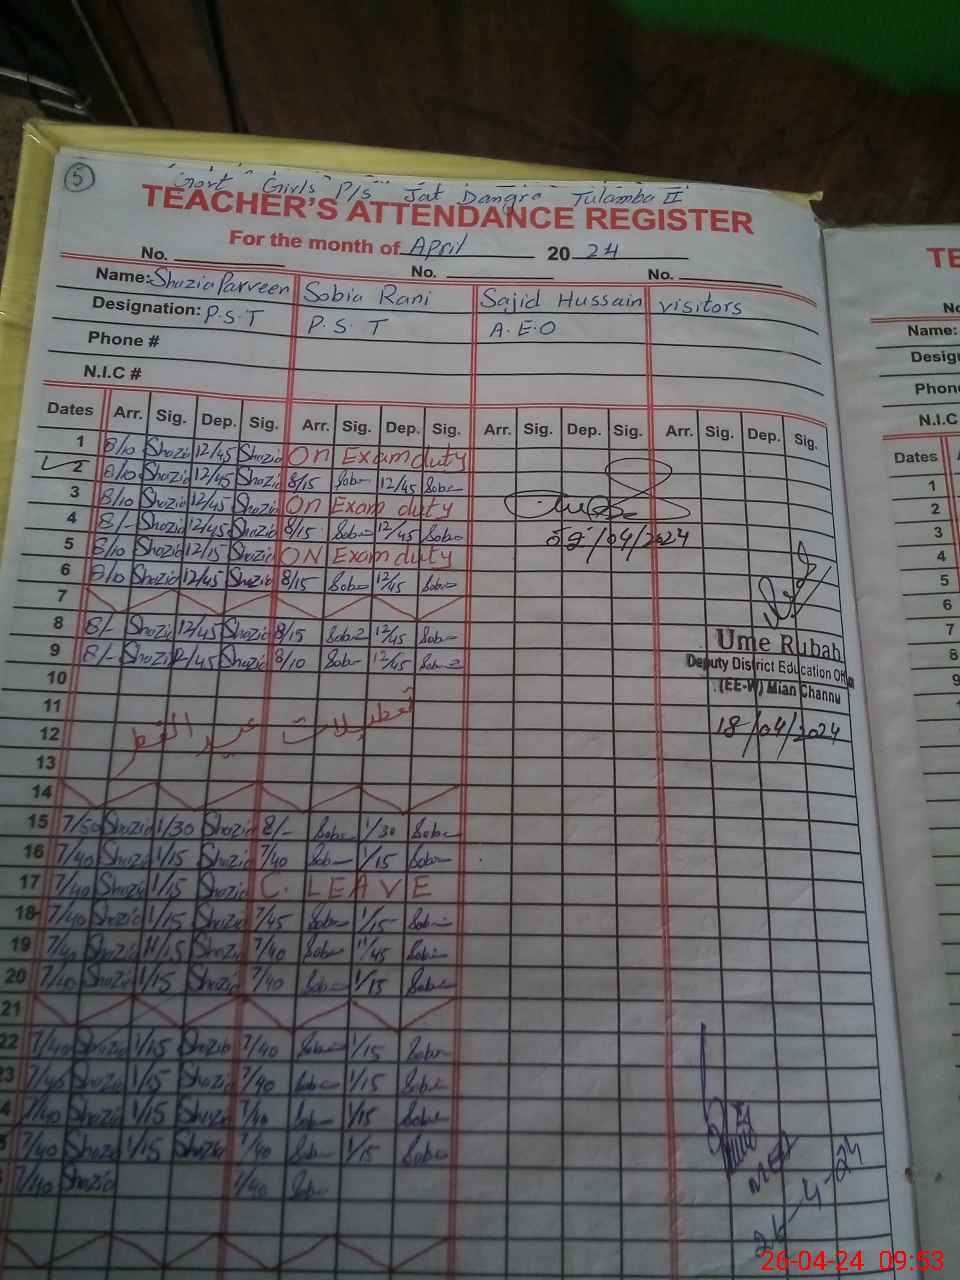 5
Govt Girls P/s Jat Dangra Tulamba II
TEACHER'S ATTENDANCE REGISTER
For the month of April 2024
No. No. No.
Name: Shazia Parveen Sobia Rani Sajid Hussain visitors
Designation: P.S.T P.S.T A.E.O
Phone #
N.I.C #
Dates Arr. Sig. Dep. Sig. Arr. Sig. Dep. Sig. Arr. Sig. Dep. Sig. Arr. Sig. Dep. Sig.
1 8/10 Shazia 12/45 Shazia On Exam duty
2 8/10 Shazia 12/45 Shazia 8/15 Sobia 12/45 Sobia
3 8/10 Shazia 12/45 Shazia On Exam duty
4 8/- Shazia 12/45 Shazia 8/15 Sobia 12/45 Sobia
/04/2024
5 8/10 Shazia 12/15 Shazia ON Exam duty
6 8/10 Shazia 12/45 Shazia 8/15 Sobia 12/45 Sobia
7
8 8/- Shazia 12/45 Shazia 8/15 Sobia 12/45 Sobia
Ume Rubab
9 8/- Shazia 12/45 Shazia 8/10 Sobia 12/45 Sobia
Deputy District Education Officer
(EE-W) Mian Channu
10
11
18/04/2024
12 تعطیلات عید الفطر
13
14
15 7/50 Shazia 1/30 Shazia 8/- Sobia 1/30 Sobia
16 7/40 Shazia 1/15 Shazia 7/40 Sobia 1/15 Sobia
17 7/40 Shazia 1/15 Shazia C. LEAVE
18 7/40 Shazia 1/15 Shazia 7/45 Sobia 1/15 Sobia
19 7/40 Shazia 11/15 Shazia 7/40 Sobia 11/45 Sobia
20 7/40 Shazia 1/15 Shazia 7/40 Sobia 1/15 Sobia
21
22 7/40 Shazia 1/15 Shazia 7/40 Sobia 1/15 Sobia
23 7/40 Shazia 1/15 Shazia 7/40 Sobia 1/15 Sobia
4 7/40 Shazia 1/15 Shazia 7/40 Sobia 1/15 Sobia
5 7/40 Shazia 1/15 Shazia 7/40 Sobia 1/15 Sobia
7/40 Shazia 7/40 Sobia
26-4-24
TE
No
Name:
Desig
Phon
N.I.C
Dates
1
2
3
4
5
6
7
8
9
26-04-24 09:53